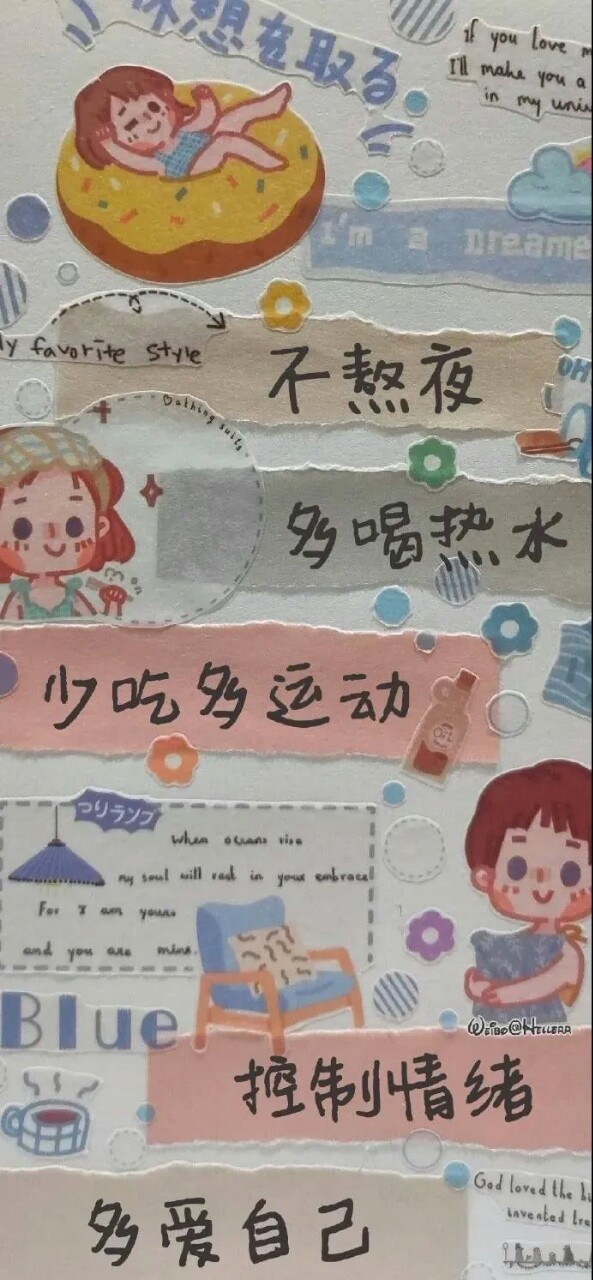 休想を取る
If you love m
I'll make you a
in my univ
I'm a Dreame
My favorite style
不熬夜
OH
Bathing suits
多喝热水
少吃多运动
Oil
つりランプ
When oceans rise
my soul will rest in your embrace
For I am yours
and you are mine.
Blue
Weibo@Hellera
控制情绪
God loved the bi
invented tre
多爱自己